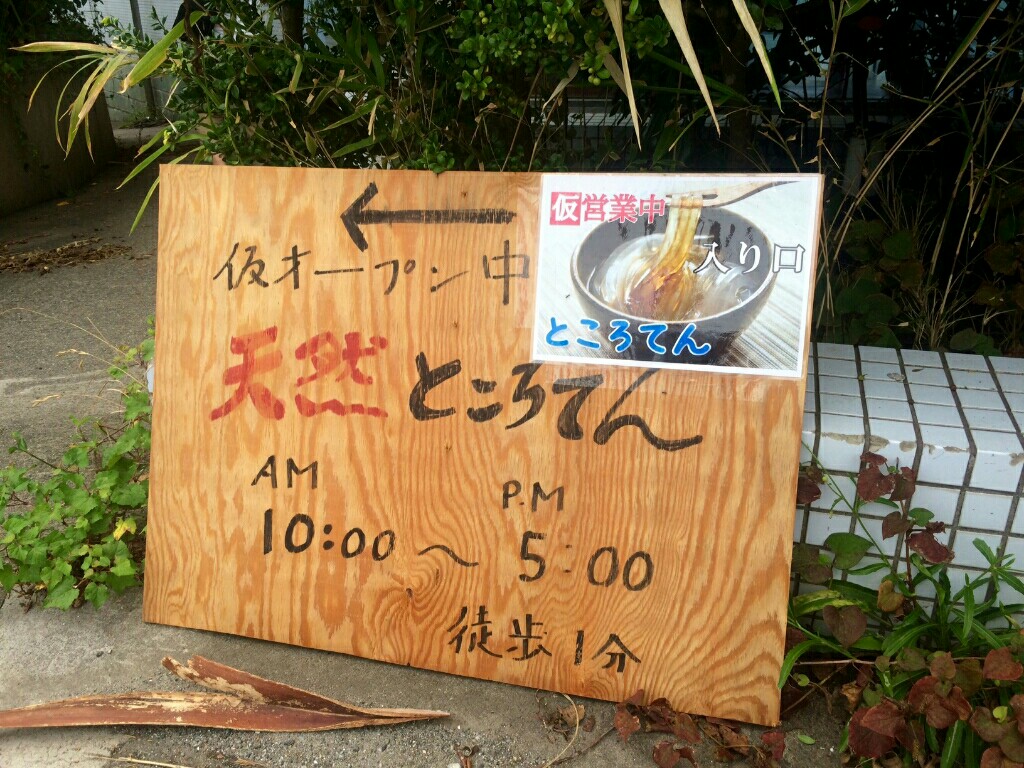 ←
仮オープン中
仮営業中
入り口
ところてん
天然ところてん
AM
P.M
10:00〜5:00
徒歩1分